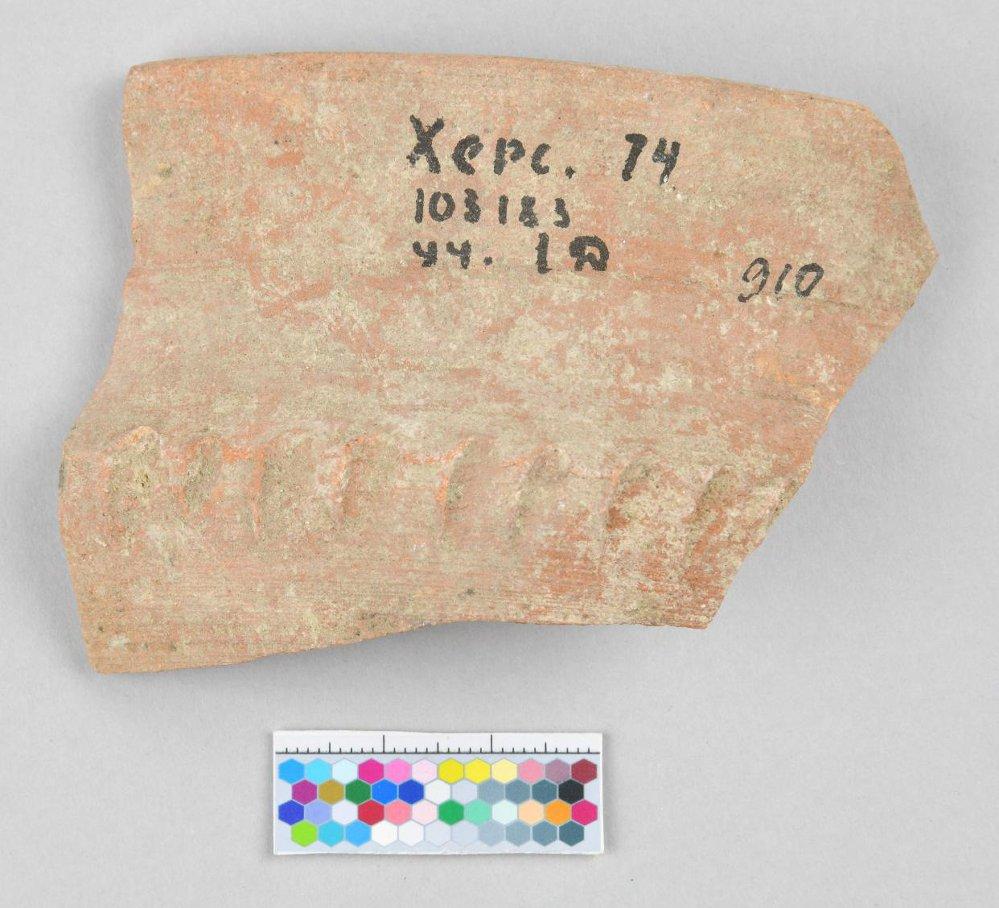 Херс. 74
103183
уч. 1 Д
910